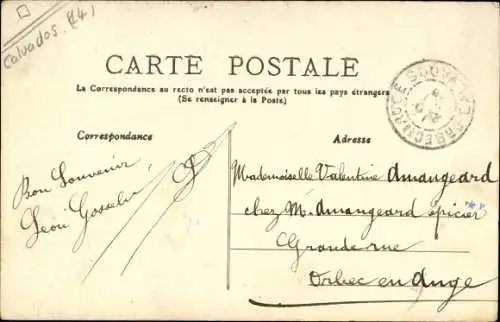 Calvados. (14)
CARTE POSTALE
La Correspondance au recto n'est pas acceptée par tous les pays étrangers
(Se renseigner à la Poste)
Correspondance
Adresse
Bon Souvenir
Léon Gosselin
Mademoiselle Valentine Amangeard
chez M. Amangeard épicier
Grande rue
Orbec en Auge
ORBEC EN AUGE CALVADOS